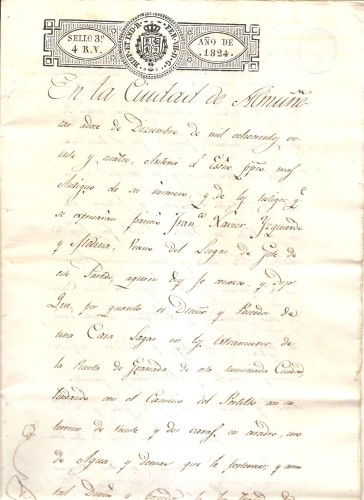 SELLO 3º
4 R.V.
HISP. ET IND. R. FERD. VII. D. G.
AÑO DE
1824.
En la Ciudad de Almuñe
car a doce de Diciembre de mil ochocientos ve
inte y cuatro, Antemi el Essno pppco mas
Antiguo de su número, y de los testigos qe
se expresarán pareció Franco Xavier Yzquierdo
y Medina, Vecino del Lugar de Jete de
este Partido, a quien doy fe conozco, y dijo
Que por quanto es Dueño y Poseedor de
una Casa Lagar en los extramuros de
la Puerta de Granada de esta nominada Ciudad,
lindando con el Camino del Portillo con
terreno de treinta y dos varas en cuadro, uso
de Agua, y demas que le pertenece, y como
tal Dueño y